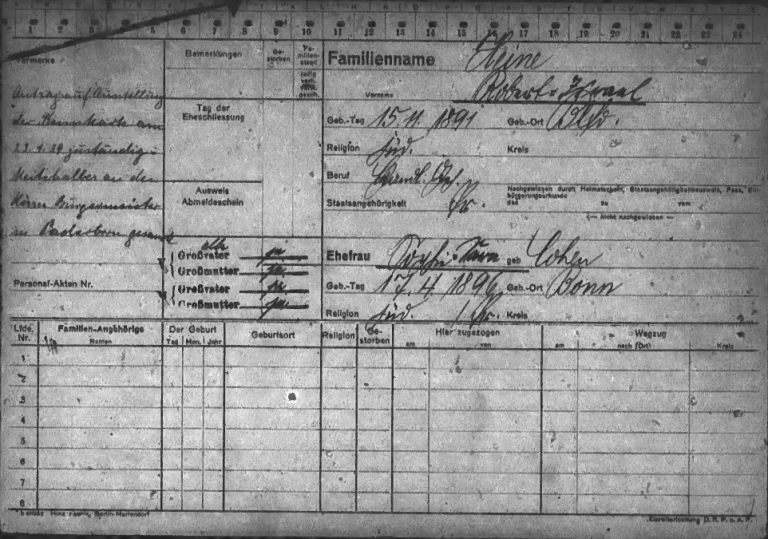 1 2 3 4 5 6 7 8 9 10 11 12 13 14 15 16 17 18 19 20 21 22 23 24
Vermerke
Antrag auf Ausstellung
der Kennkarte am
23.1.39 zuständig-
keitshalber an den
Herrn Bürgermeister
in Paderborn gesandt
Personal-Akten Nr.
Bemerkungen
Ge-
storben
Fa-
milien-
stand
ledig
verh.
verw.
gesch.
Tag der
Eheschliessung
Ausweis
Abmeldeschein
alle
Großvater ja
Großmutter ja
Großvater ja
Großmutter ja
Familienname Heine
Vorname Robert-Israel
Geb.-Tag 15. 11. 1891 Geb.-Ort Blfd.
Religion jüd. Kreis
Beruf
Nachgewiesen durch: Heimatschein, Staatsangehörigkeitsausweis, Pass, Ein-
bürgerungsurkunde
Staatsangehörigkeit Pr. des zu vom
(— nicht nachgewiesen —)
Ehefrau Sara geb Cohen
Geb.-Tag 17. 4. 1896 Geb.-Ort Bonn
Religion jüd. Pr. Kreis
Lfde.
Nr. Familien-Angehörige
Namen Der Geburt
Tag Mon. Jahr Geburtsort Religion Ge-
storben Hier zugezogen
am von Wegzug
am nach (Ort) Kreis
1
2
3
4
5
6
7
8
Berlin-Mariendorf
D. R. P. u. A. P.